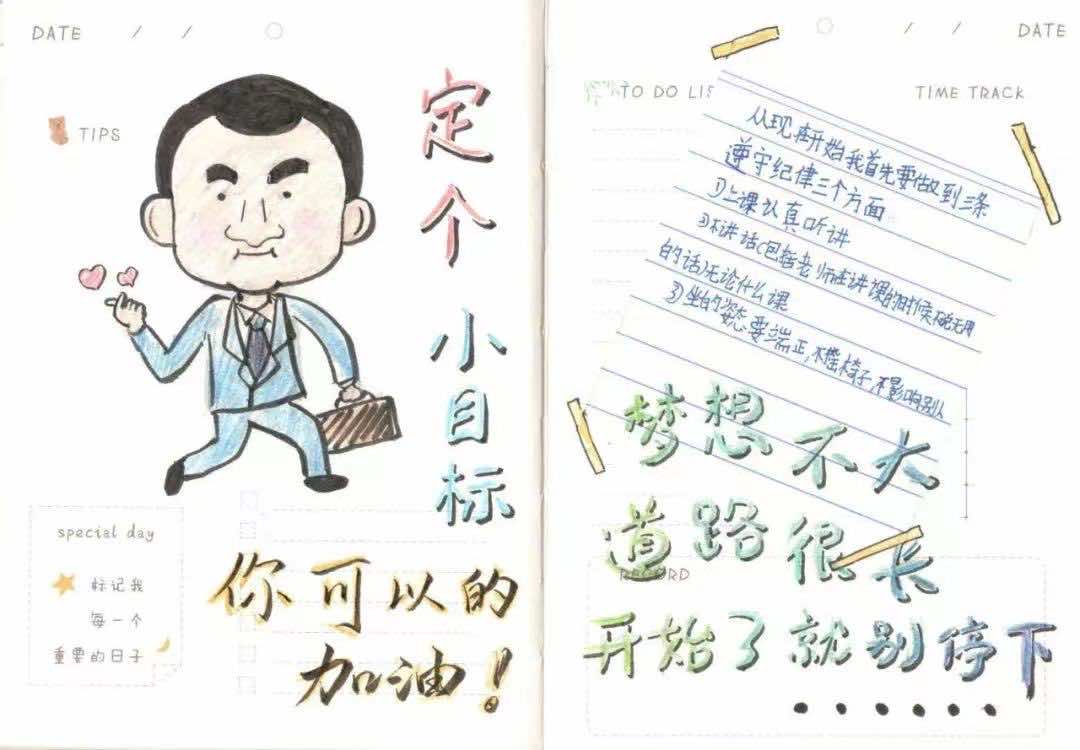 DATE / /
TIPS
定个小目标
special day
标记我
每一个
重要的日子
你可以的
加油!
/ / DATE
TO DO LIS
TIME TRACK
从现在开始我首先要做到三条
遵守纪律三个方面
①上课认真听讲
②不讲话(包括老师在讲课的时候不说无用
的话)无论什么课
③坐的姿态要端正,不摇椅子,不影响别人
梦想不大
道路很长
RECORD
开始了就别停下
......